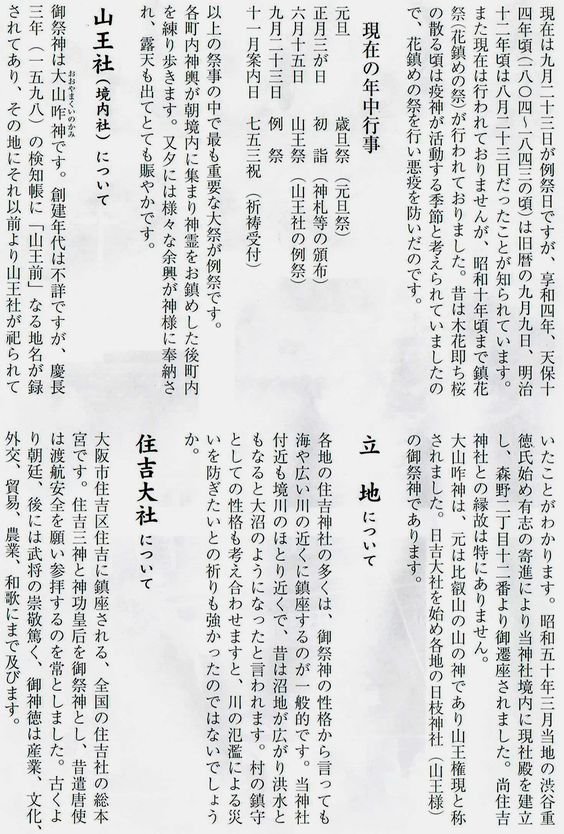 現在は九月二十三日が例祭日ですが、享和四年、天保十
四年頃（一八〇四〜一八四三の頃）は旧暦の九月九日、明治
十二年頃は八月二十三日だったことが知られています。
また現在は行われておりませんが、昭和十年頃まで鎮花
祭（花鎮めの祭）が行われておりました。昔は木花即ち桜
の散る頃は疫神が活動する季節と考えられていましたの
で、花鎮めの祭を行い悪疫を防いだのです。
現在の年中行事
元旦 歳旦祭（元旦祭）
正月三が日 初詣（神札等の頒布）
六月十五日 山王祭（山王社の例祭）
九月二十三日 例祭
十一月案内日 七五三祝（祈祷受付）
以上の祭事の中で最も重要な大祭が例祭です。
各町内神輿が朝境内に集まり神霊をお鎮めした後町内
を練り歩きます。又夕には様々な余興が神様に奉納さ
れ、露天も出てとても賑やかです。
山王社（境内社）について
御祭神は大山咋神です。創建年代は不詳ですが、慶長
おおやまくいのかみ
三年（一五九八）の検知帳に「山王前」なる地名が録
されてあり、その地にそれ以前より山王社が祀られて
いたことがわかります。昭和五十年三月当地の渋谷重
徳氏始め有志の寄進により当神社境内に現社殿を建立
し、森野二丁目十二番より御遷座されました。尚住吉
神社との縁故は特にありません。
大山咋神は、元は比叡山の山の神であり山王権現と称
されました。日吉大社を始め各地の日枝神社（山王様）
の御祭神であります。
立地について
各地の住吉神社の多くは、御祭神の性格から言っても
海や広い川の近くに鎮座するのが一般的です。当神社
付近も境川のほとり近くで、昔は沼地が広がり洪水と
もなると大沼のようになったと言われます。村の鎮守
としての性格も考え合わせますと、川の氾濫による災
いを防ぎたいとの祈りも強かったのではないでしょう
か。
住吉大社について
大阪市住吉区住吉に鎮座される、全国の住吉社の総本
宮です。住吉三神と神功皇后を御祭神とし、昔遣唐使
は渡航安全を願い参拝するのを常としました。古くよ
り朝廷、後には武将の崇敬篤く、御神徳は産業、文化、
外交、貿易、農業、和歌にまで及びます。